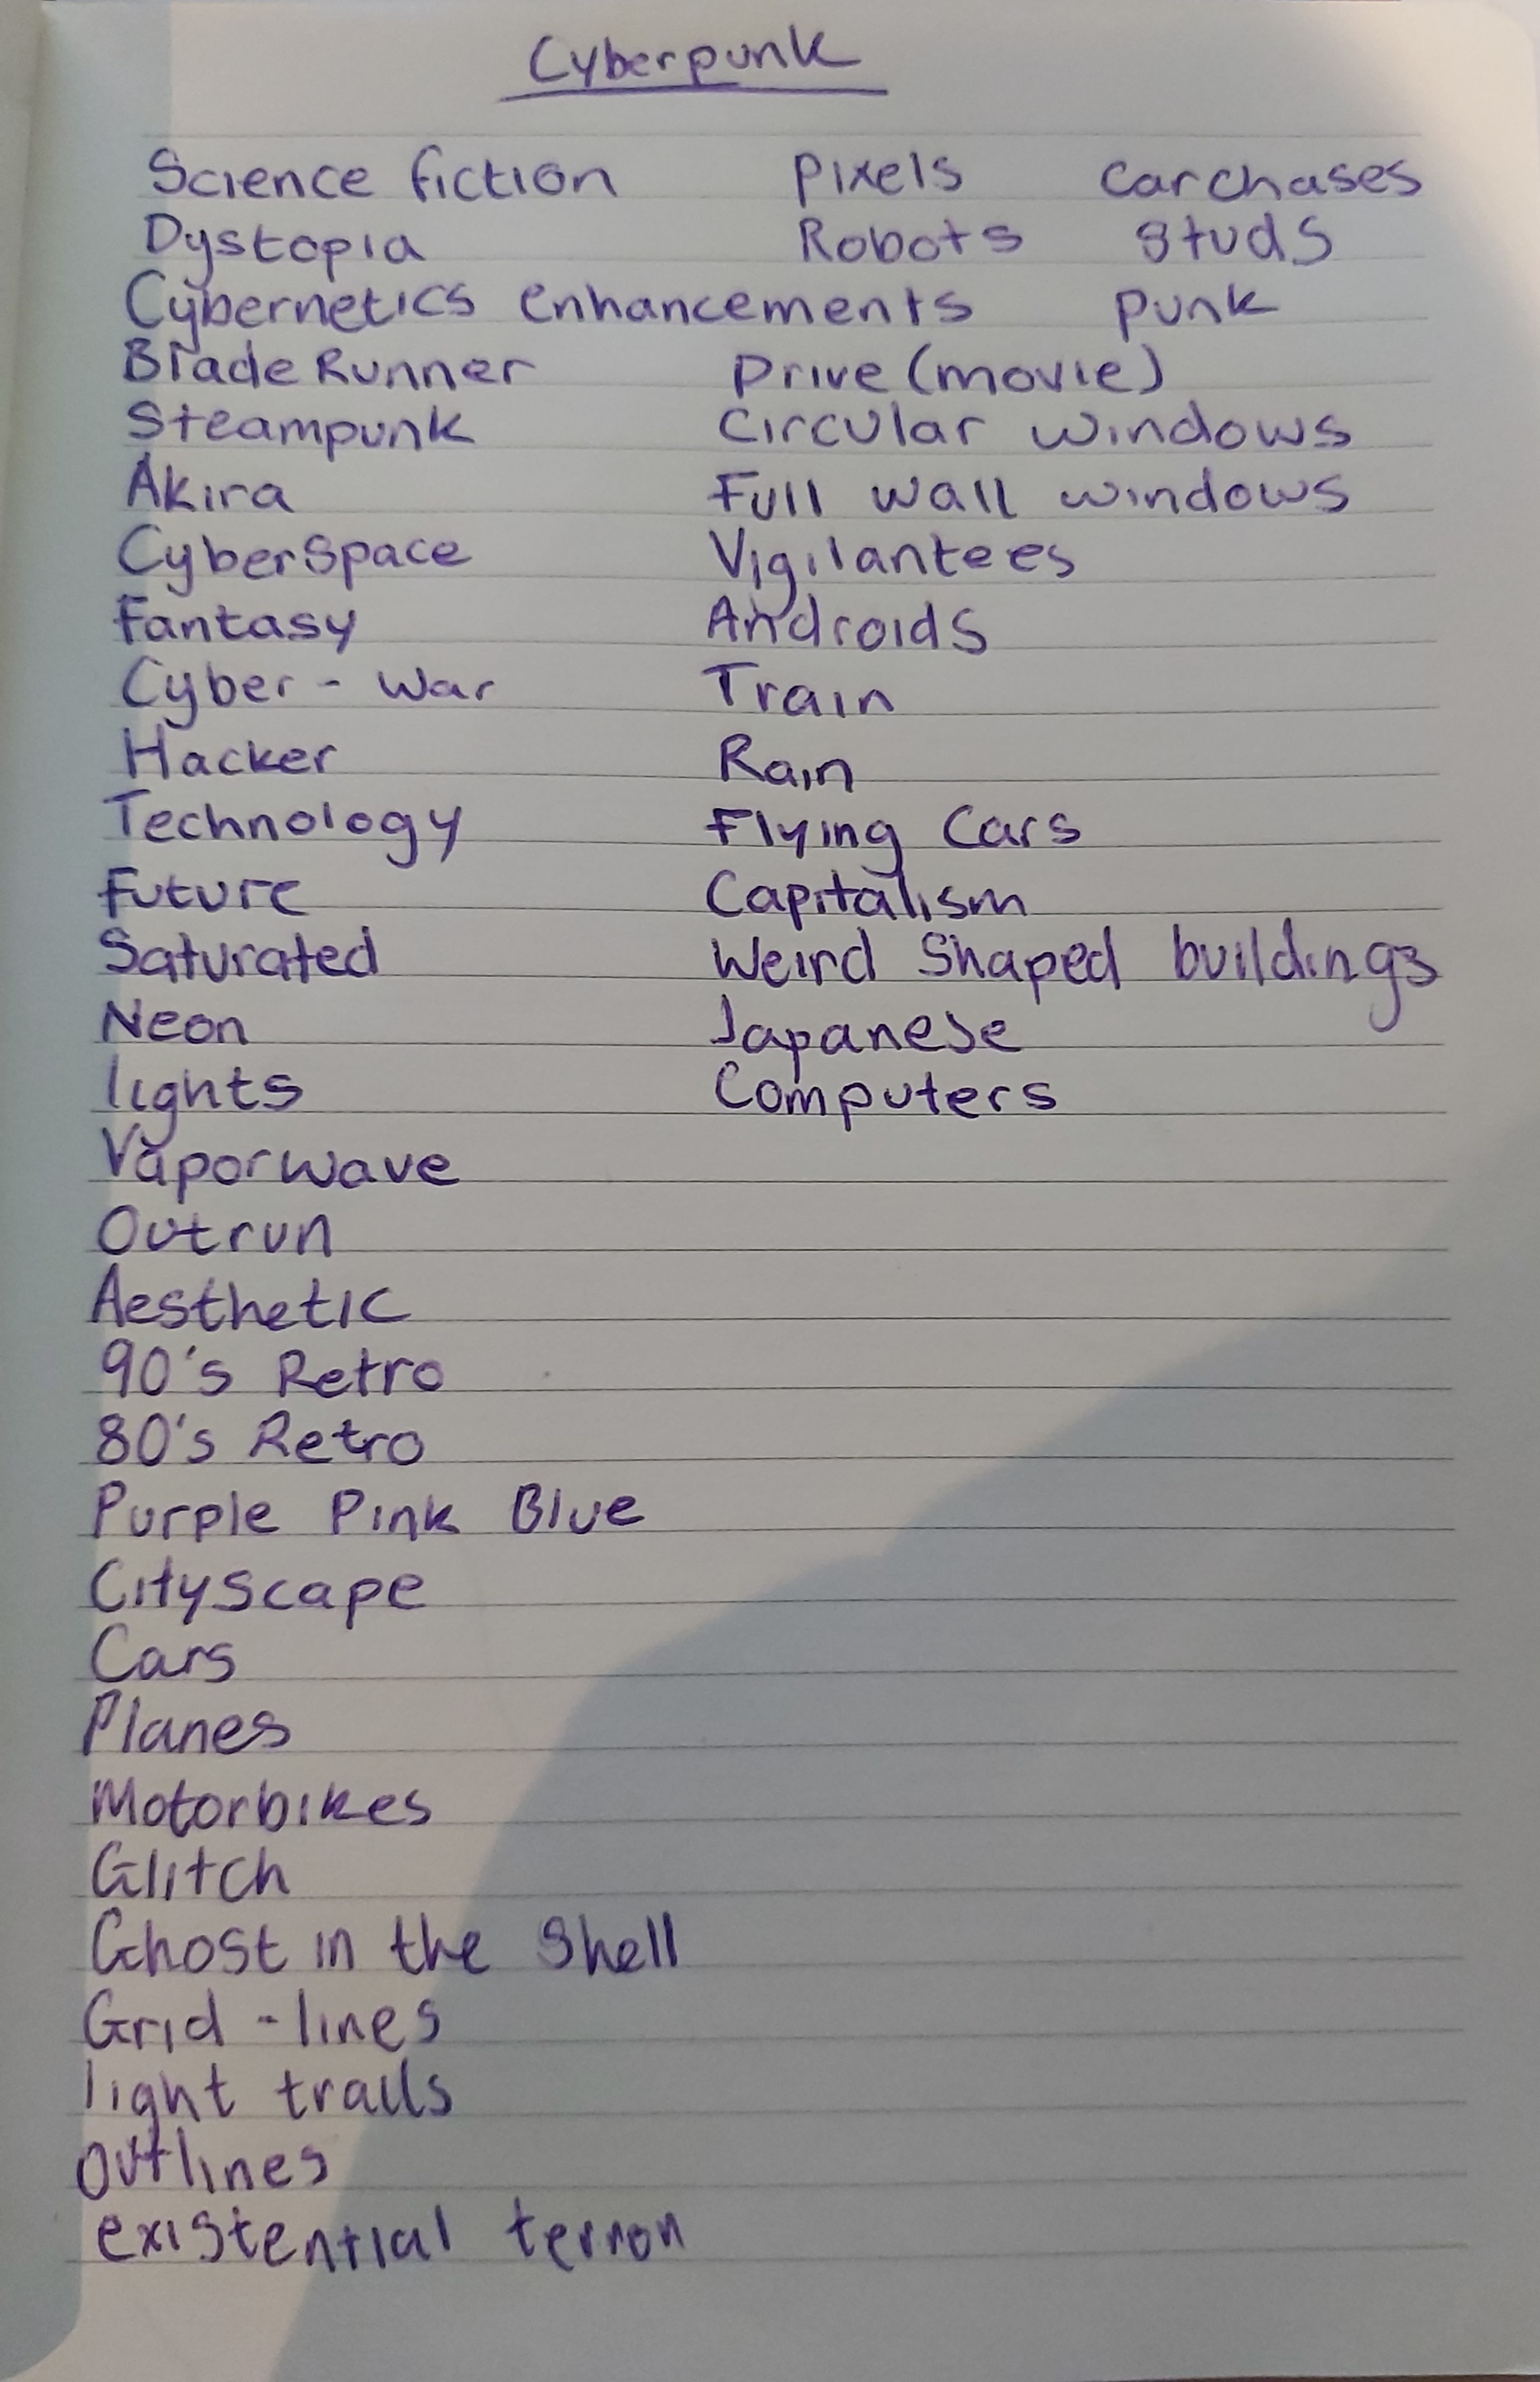 Cyberpunk
Science fiction Pixels Carchases
Dystopia Robots Studs
Cybernetics enhancements punk
Blade Runner Drive (movie)
Steampunk Circular windows
Akira Full wall windows
CyberSpace Vigilantees
Fantasy Androids
Cyber - War Train
Hacker Rain
Technology Flying Cars
Future Capitalism
Saturated Weird Shaped buildings
Neon Japanese
lights Computers
Vaporwave
Outrun
Aesthetic
90's Retro
80's Retro
Purple Pink Blue
Cityscape
Cars
Planes
Motorbikes
Glitch
Ghost in the Shell
Grid - lines
light trails
Outlines
existential terron